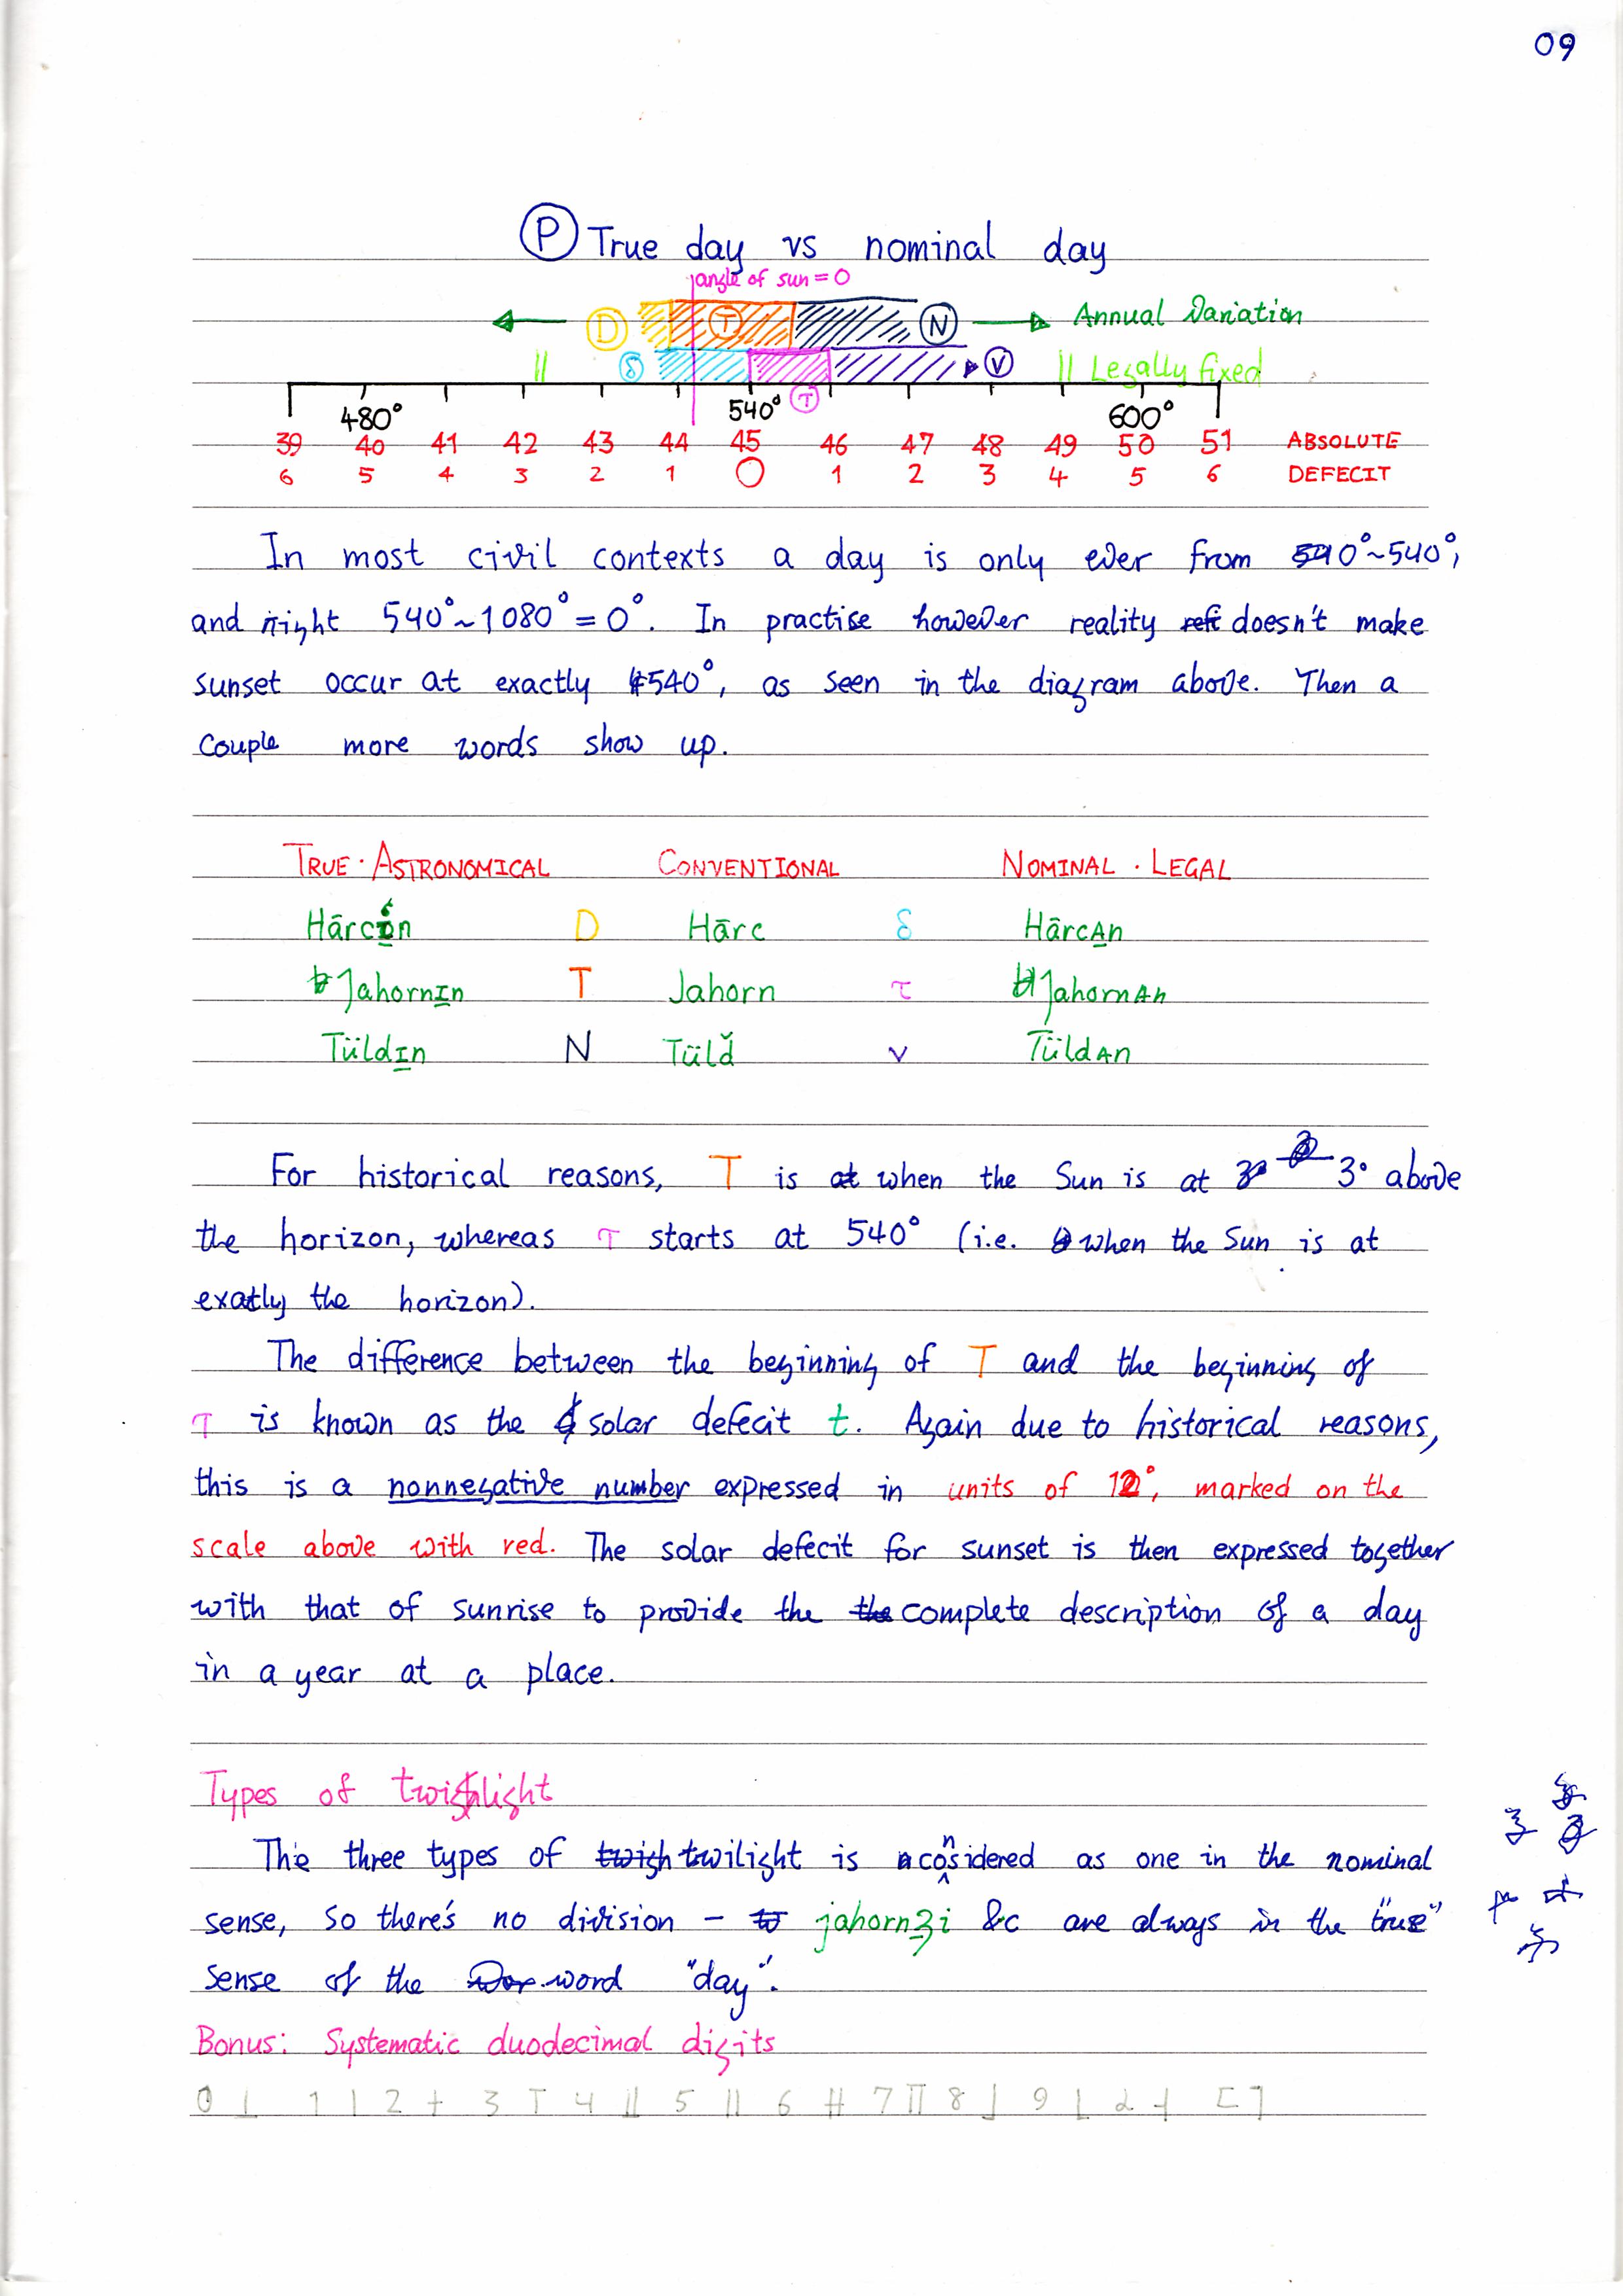 09
Ⓟ True day vs nominal day
angle of sun = 0
D T N Annual Variation
|| δ V || Legally fixed
480° 540° T 600°
39 40 41 42 43 44 45 46 47 48 49 50 51 ABSOLUTE
6 5 4 3 2 1 0 1 2 3 4 5 6 DEFECIT
In most civil contexts a day is only ever from 0°~540°,
and night 540°~1080° = 0°. In practise however reality doesn't make
sunset occur at exactly 540°, as seen in the diagram above. Then a
couple more words show up.
TRUE · ASTRONOMICAL CONVENTIONAL NOMINAL · LEGAL
D Hārc δ HārcAn
JahornIn T Jahorn τ JahornAn
TüldIn N Tüld̆ ν TüldAn
For historical reasons, T is when the Sun is at 3° above
the horizon, whereas τ starts at 540° (i.e. when the Sun is at
exatly the horizon).
The difference between the beginning of T and the beginning of
τ is known as the solar defecit t. Again due to historical reasons,
this is a nonnegative number expressed in units of 12°, marked on the
scale above with red. The solar defecit for sunset is then expressed together
with that of sunrise to provide the complete description of a day
in a year at a place.
Types of twighlight
The three types of twilight is considered as one in the nominal
sense, so there's no division – jahornʒi &c are always in the "true"
sense of the word "day".
Bonus: Systematic duodecimal digits
0 1 2 3 4 5 6 7 8 9